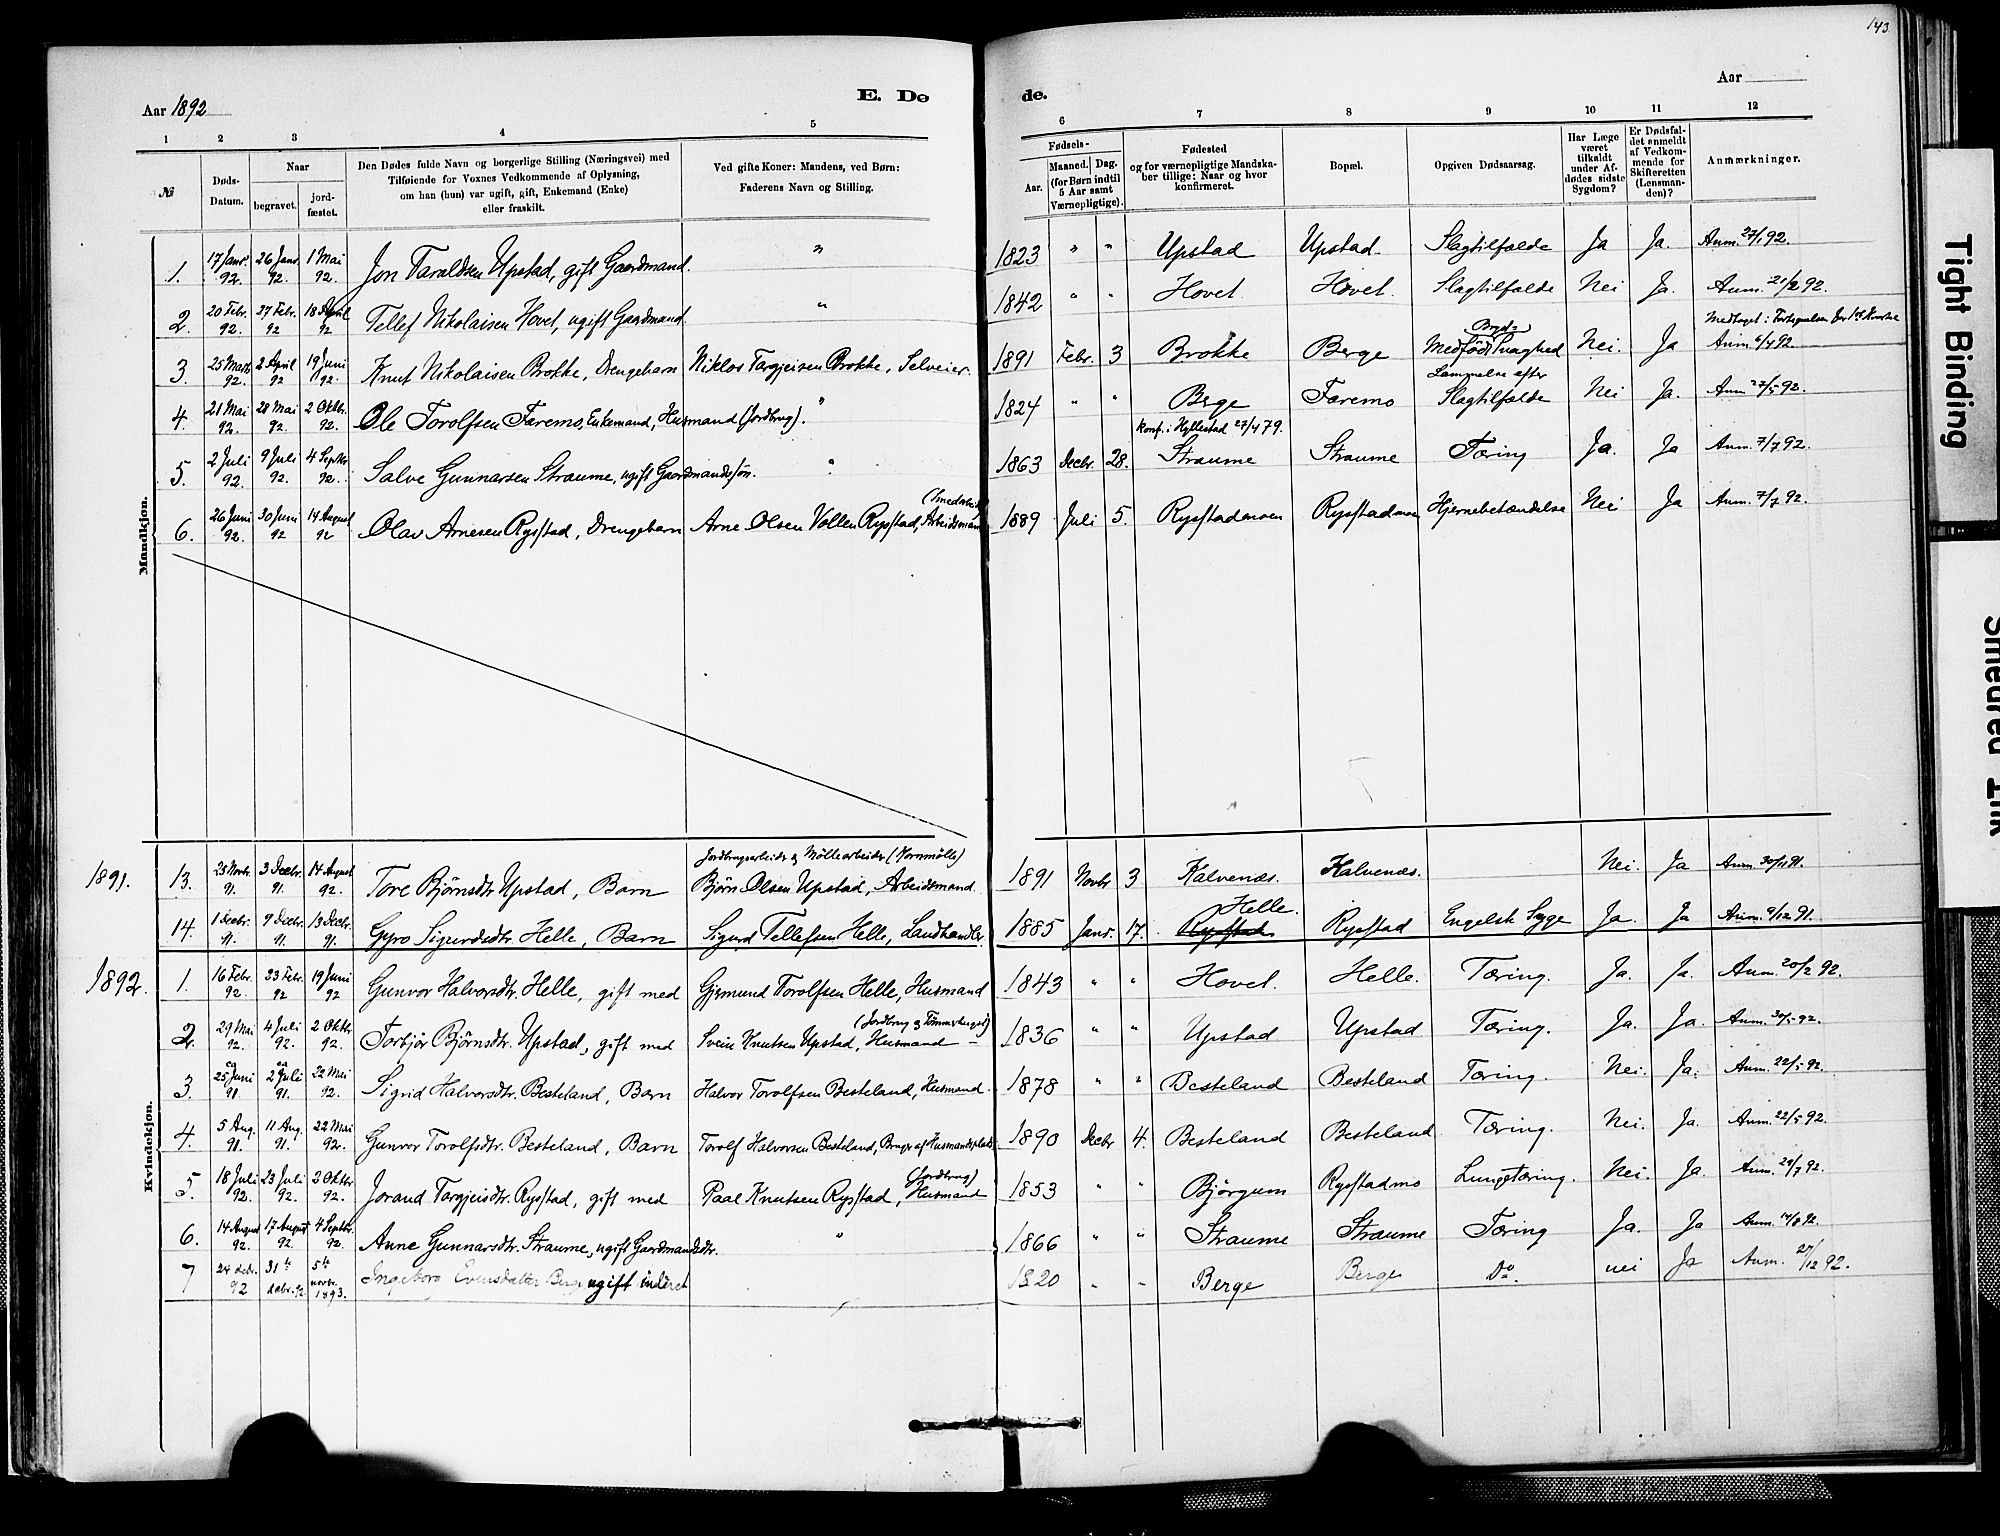 143
Aar 1892
E. Dø
de.
Aar
1 2 3 4 5 6 7 8 9 10 11 12
№
Døds-Datum.
Naar
begravet.
jord-fæstet.
Den Dødes fulde Navn og borgerlige Stilling (Næringsvei) med
Tilføiende for Voxnes Vedkommende af Oplysning,
om han (hun) var ugift, gift, Enkemand (Enke)
eller fraskilt.
Ved gifte Koner: Mandens, ved Børn:
Faderens Navn og Stilling.
Fødsels-
Aar. Maaned. Dag.
(for Børn indtil
5 Aar samt
Værnepligtige).
Fødested
og for værnepligtige Mandska-
ber tillige: Naar og hvor
konfirmeret.
Bopæl.
Opgiven Dødsaarsag.
Har Læge
været
tilkaldt
under Af-
dødes sidste
Sygdom?
Er Dødsfal-
det anmeldt
af Vedkom-
mende for
Skifteretten
(Lensman-
den)?
Anmærkninger.
Mandkjøn.
1. 17 Janr. 92. 26 Janr. 92. 1 Mai 92. Jon Taraldsen Upstad, gift Gaardmand. " 1823 " " Upstad Upstad. Slagtilfælde Ja Ja. Anm. 27/1 92.
2. 20 Febr. 92. 27 Febr. 92 18 April 92 Tellef Nikolaisen Hovet, ugift Gaardmand. " 1842 " " Hovet. Hovet. Slagtilfælde Nei Ja. Anm. 21/2 92.
Medtaget i Fortegnelsen for 1ste Kvartal
3. 25 Marts 92. 2 April 92 19 Juni 92. Knut Nikolaisen Brokke, Drengebarn Niklos Targjeisen Brokke, Selveier. 1891 Febr. 3 Brokke Berge Medfødt Svaghed Nei. Ja Anm. 6/4 92.
Lammelse efter
4. 21 Mai 92. 28 Mai 92. 2 Oktbr. 92. Ole Torolfsen Faremo, Enkemand, Husmand (Jordbrug). " 1824 " " Berge Faremo Slagtilfælde Nei Ja. Anm. 27/5 92.
Konf. i Hyllestad 27/4 79.
5. 2 Juli 92. 9 Juli 92. 4 Septbr. 92. Salve Gunnarsen Straume, ugift Gaardmandssøn. " 1863 Decbr. 28. Straume Straume Tæring Ja. Ja Anm. 7/7 92.
6. 26 Juni 92. 30 Juni 92 14 August 92 Olav Arnesen Rysstad, Drengebarn Arne Olsen Vollen Rysstad, Arbeidsmand 1889 Juli 5. Rysstadmoen Rysstadmoen Hjernebetændelse Nei Ja Anm. 7/7 92.
Kvindekjøn.
Jordbrugsarbeide og Møllearbeider (Kornmølle)
1891. 13. 25 Novbr. 91. 3 Decbr. 91. 14 August 92. Tore Bjørnsdtr. Upstad, Barn Bjørn Olsen Upstad, Arbeidsmand. 1891 Novbr 3 Kalvenæs. Kalvenæs. Nei. Ja Anm. 30/11 91.
Helle.
14. 1 Decbr. 91. 9 Decbr. 91. 13 Decbr. 91. Gyro Sigurdsdtr. Helle, Barn Sigurd Tellefsen Helle, Landhandler. 1885 Janr. 17. Rysstad Rysstad Engelsk Syge Ja. Ja Anm. 9/12 91.
1892. 1. 16 Febr. 92. 23 Febr. 92 19 Juni 92 Gunvor Halvorsdtr. Helle, gift med Gjermund Torolfsen Helle, Husmand 1843 " " Hovet. Helle. Tæring. Ja. Ja. Anm. 20/2 92.
2. 29 Mai 92. 4 Juli 92. 2 Oktbr. 92. Torbjør Bjørnsdtr. Upstad, gift med Svein Knutsen Upstad, Husmand (Jordbrug & Tømmerhugst) 1836 " " Upstad Upstad Tæring. Ja. Ja. Anm. 30/5 92.
3. 25 Juni 91. 2 Juli 91. 22 Mai 92. Sigrid Halvorsdtr. Besteland, Barn Halvor Torolfsen Besteland, Husmand. 1878 " " Besteland Besteland Tæring. Nei. Ja. Anm. 22/5 92.
4. 5 Aug. 91. 11 Aug. 91. 22 Mai 92. Gunvor Torolfsdtr. Besteland, Barn Torolf Halvorsen Besteland, Bruger af Husmandsplads 1890 Decbr 4. Besteland Besteland Tæring. Nei. Ja. Anm. 22/5 92.
5. 18 Juli 92. 23 Juli 92. 2 Oktbr 92. Jorand Targjeisdtr. Rysstad, gift med Paal Knutsen Rysstad, Husmand (Jordbrug) 1853 " " Bjørgum Rysstadmo Lungetæring. Nei. Ja. Anm. 29/7 92.
6. 14 August 92. 17 August 92. 4 Septbr. 92. Anne Gunnarsdtr. Straume, ugift Gaardmandsdtr. " 1866 " " Straume Straume Tæring Ja. Ja Anm. 14/8 92.
7 24 decbr. 92 31te decbr. 92 5te novbr. 1893. Ingeborg Evensdatter Berge ugift inderst 1820 " " Berge Berge Do. nei Ja Anm. 27/12 92.
Tight Binding
Smeared Ink